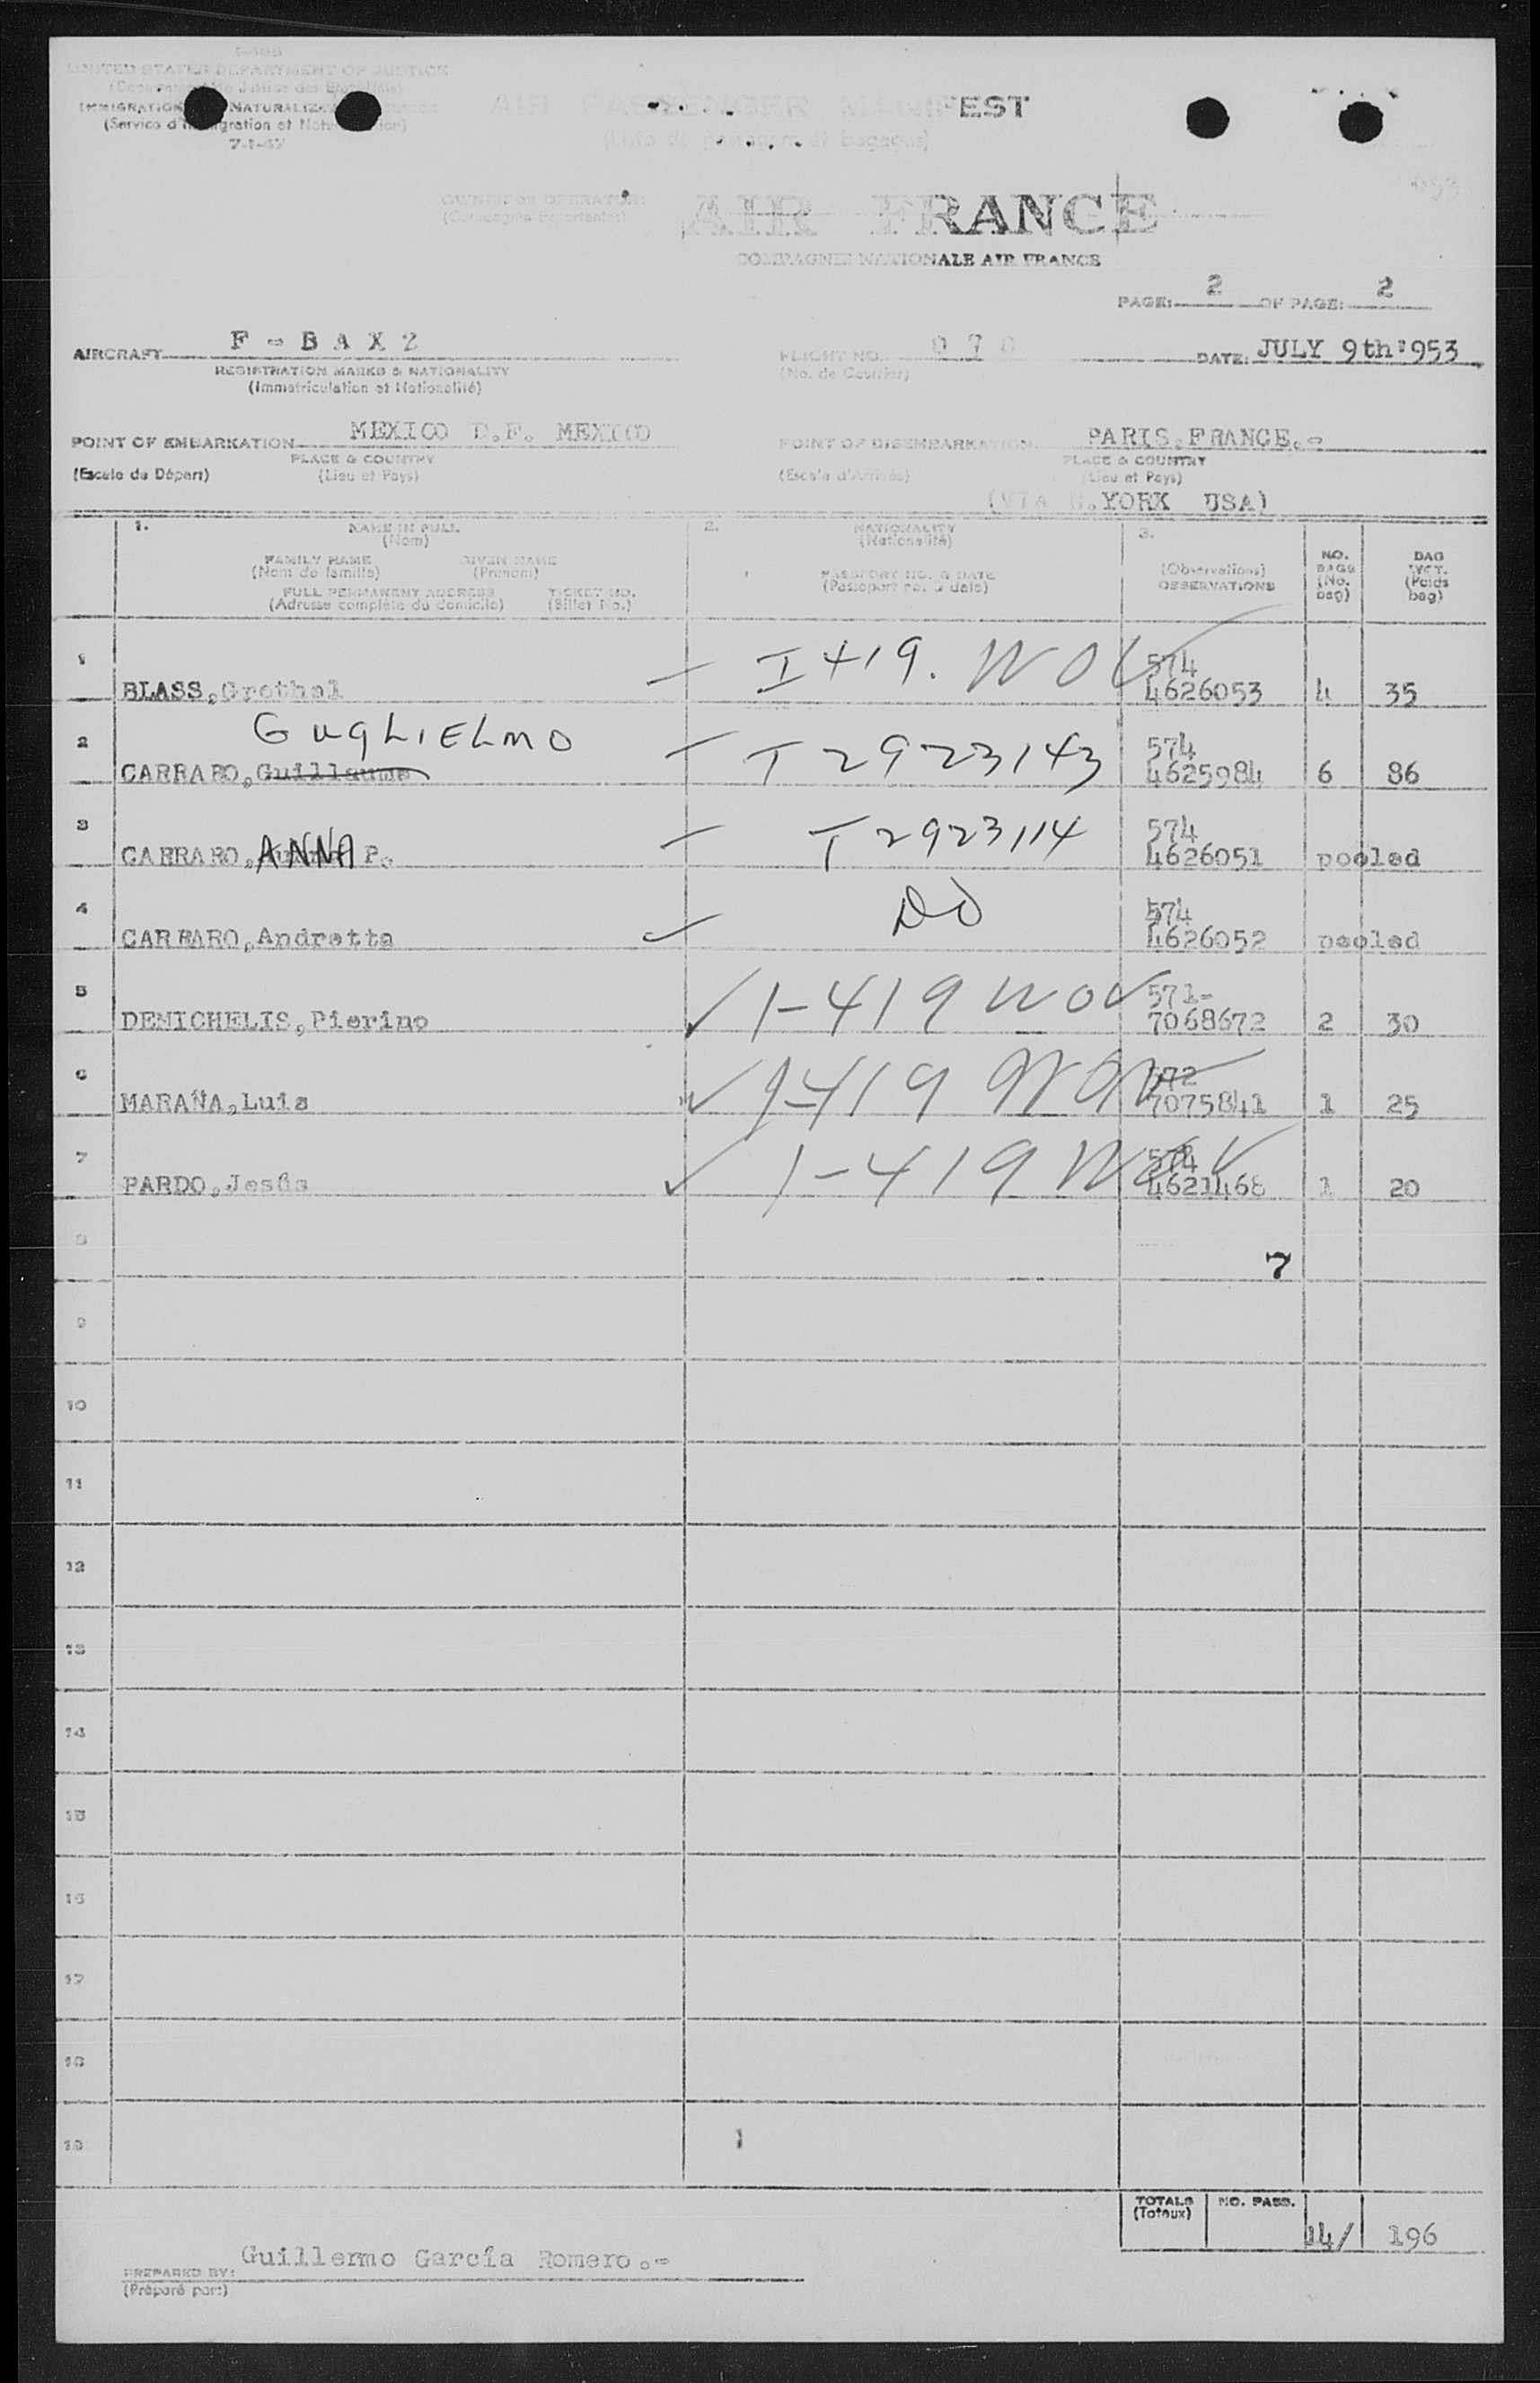 UNITED STATES DEPARTMENT OF JUSTICE
IMMIGRATION NATURALIZ
(Service d' gration et
7-1-47
AIR PASSENGER MANIFEST
(Liste de passagers et bagages)
OWNER OR OPERATOR:
AIR FRANCE
COMPAGNIE NATIONALE AIR FRANCE
PAGE: 2 OF PAGE: 2
AIRCRAFT F - B A X 2
REGISTRATION MARKS & NATIONALITY
(Immatriculation et Nationalité)
FLIGHT NO. 0 7 0
(No. de Courrier)
DATE: JULY 9th:953
POINT OF EMBARKATION MEXICO D.F. MEXICO
PLACE & COUNTRY
(Escale du Départ) (Lieu et Pays)
POINT OF DISEMBARKATION PARIS.FRANCE.-
PLACE & COUNTRY
(Escale d'Arrivée) (Lieu et Pays)
(VIA N.YORK USA)
1. NAME IN FULL
(Nom)
FAMILY NAME GIVEN NAME
(Nom de famille) (Prenom)
FULL PERMANENT ADDRESS TICKET NO.
(Adresse complète du domicile) (Billet No.)
2. NATIONALITY
(Nationalité)
PASSPORT NO. & DATE
(Passeport no. & date)
3.
(Observations)
OBSERVATIONS
NO. BAGS (No. bag)
BAG WGT. (Poids bag)
1 I 419. WOV 574
BLASS,Grethel 4626053 4 35
2 GUGLIELMO T 2923143 574
CARRARO,Guillaume 4625984 6 86
3 T 2923114 574
CARRARO,ANNA P. 4626051 pooled
4 DO 574
CARRARO,Andretta 4626052 pooled
5 1-419 WOV 571-
DEMICHELIS,Pierino 7068672 2 30
6 1-419 WOV 572
MARAÑA,Luis 7075841 1 25
7 1-419 WOV 574
PARDO,Jesús 4621468 1 20
8 7
9
10
11
12
13
14
15
16
17
18
19
TOTALS NO. PASS.
(Totaux) 14/ 196
Guillermo García Romero.-
PREPARED BY:
(Préparé par:)